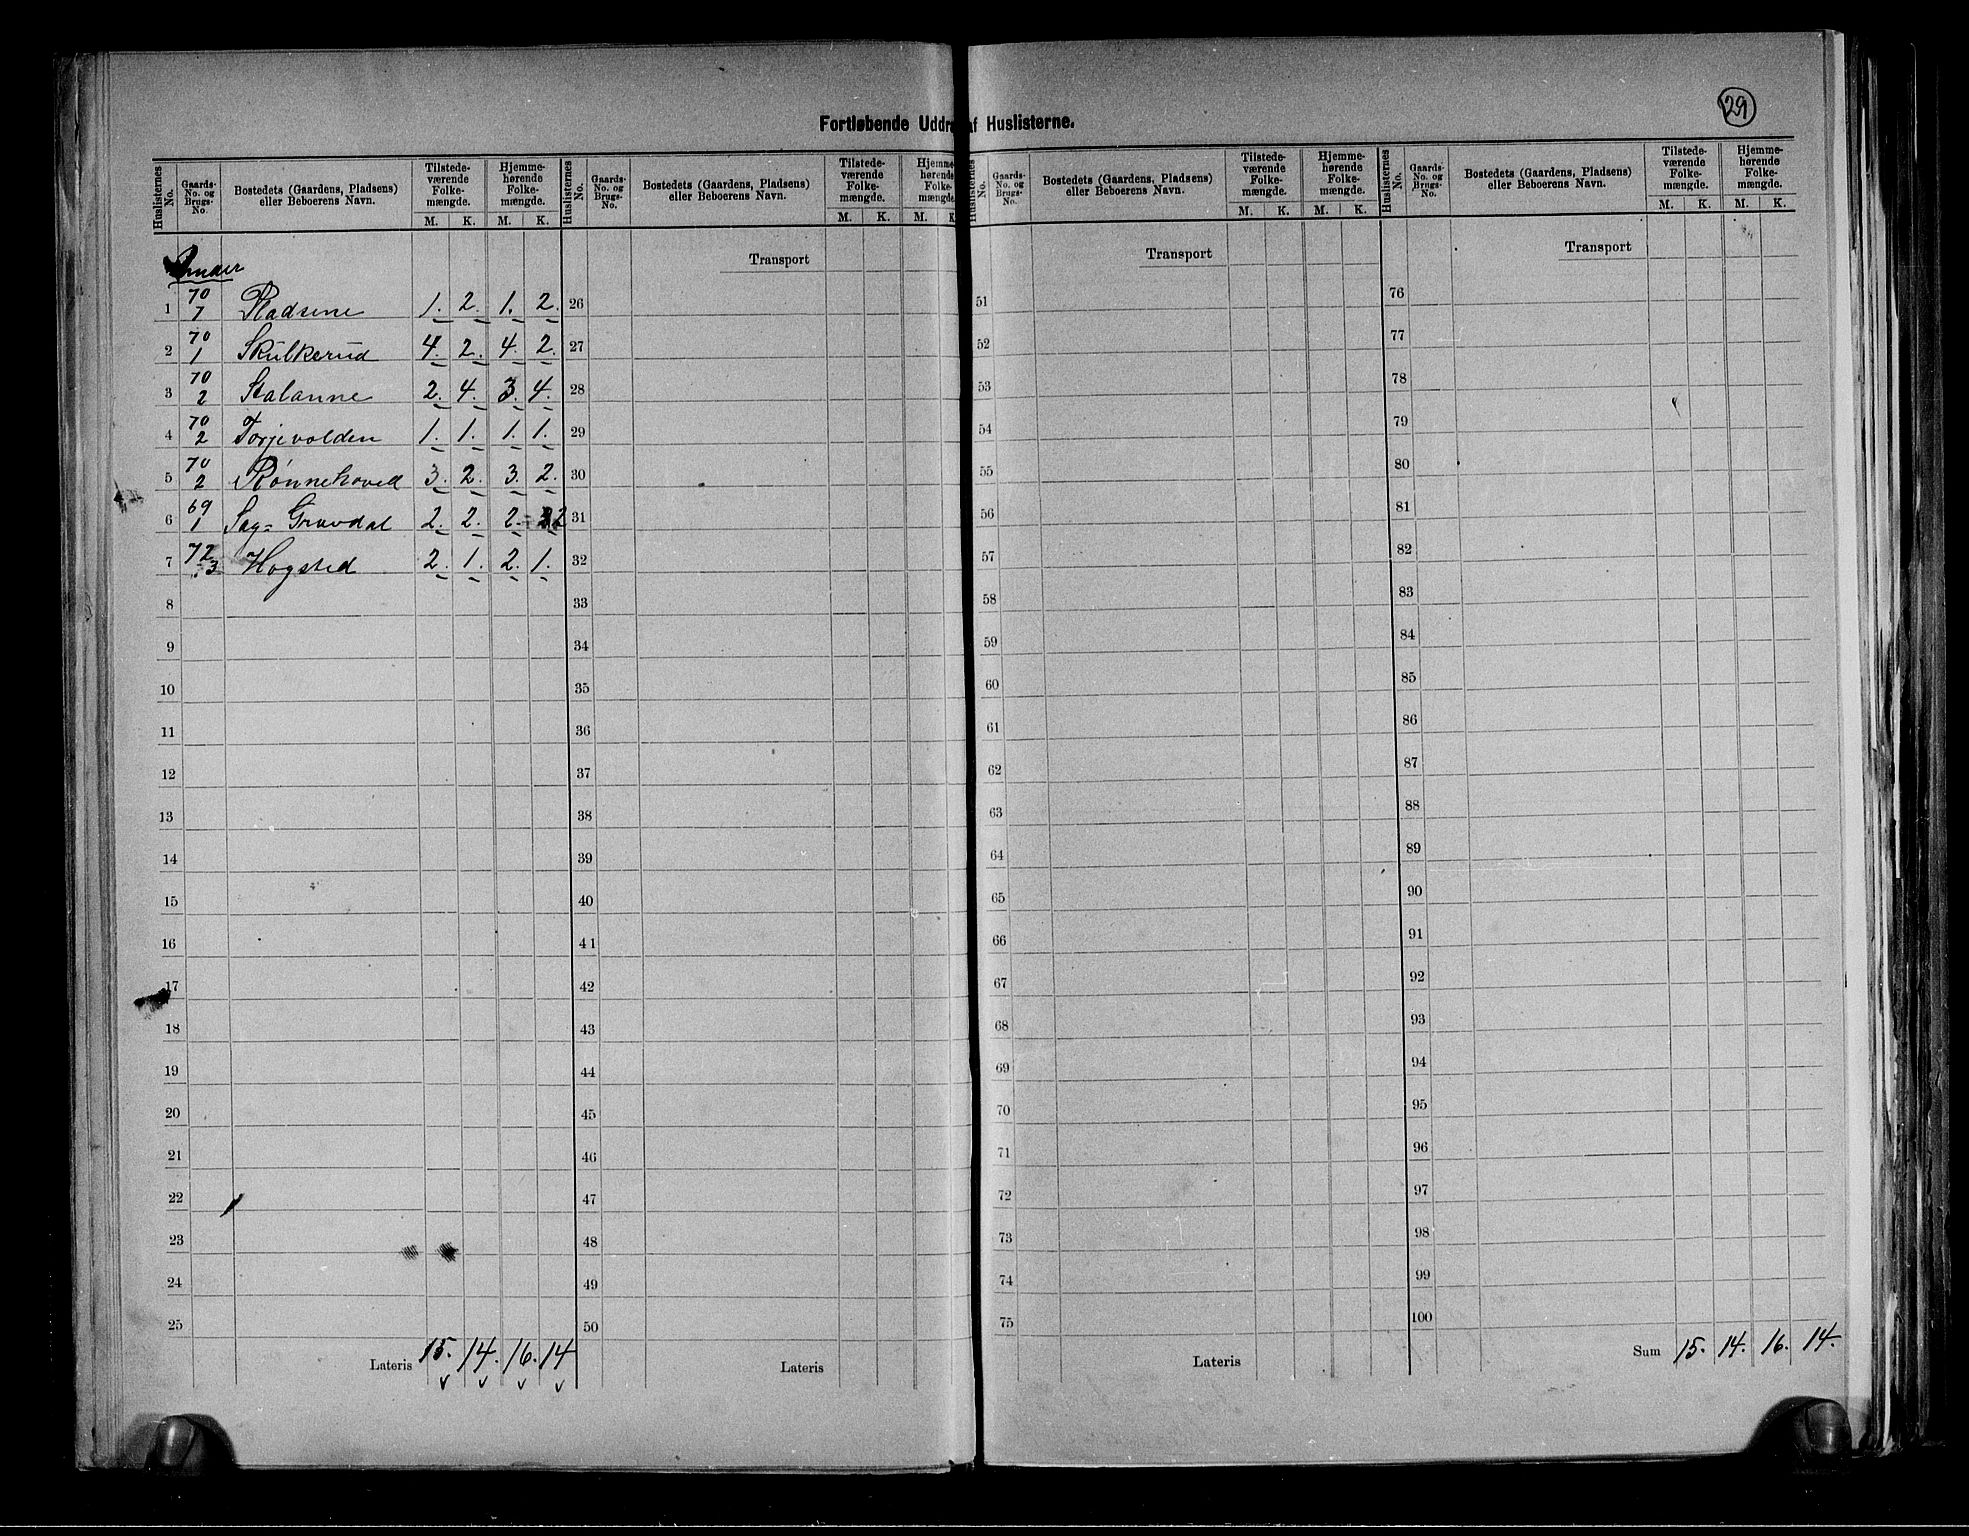 29
Fortløbende Uddr af Huslisterne.
Huslisternes No. Gaards-No. og Brugs-No. Bostedets (Gaardens, Pladsens) eller Beboerens Navn. Tilstedeværende Folkemængde. M. K. Hjemmehørende Folkemængde. M. K.
Huslisternes No. Gaards-No. og Brugs-No. Bostedets (Gaardens, Pladsens) eller Beboerens Navn. Tilstedeværende Folkemængde. M. K. Hjemmehørende Folkemængde. M. K.
Huslisternes No. Gaards-No. og Brugs-No. Bostedets (Gaardens, Pladsens) eller Beboerens Navn. Tilstedeværende Folkemængde. M. K. Hjemmehørende Folkemængde. M. K.
Huslisternes No. Gaards-No. og Brugs-No. Bostedets (Gaardens, Pladsens) eller Beboerens Navn. Tilstedeværende Folkemængde. M. K. Hjemmehørende Folkemængde. M. K.
Transport Transport Transport
1 70/7 Pladsene 1. 2. 1. 2. 26 51 76
2 70/1 Skulkerud 4. 2. 4. 2. 27 52 77
3 70/2 Stalanne 2. 4. 3. 4. 28 53 78
4 70/2 Torjevolden 1. 1. 1. 1. 29 54 79
5 70/2 Rønnehoved 3. 2. 3. 2. 30 55 80
6 69/1 Sag= Gravdal 2. 2. 2. 2 31 56 81
7 72/3 Hogsted 2. 1. 2. 1. 32 57 82
8 33 58 83
9 34 59 84
10 35 60 85
11 36 61 86
12 37 62 87
13 38 63 88
14 39 64 89
15 40 65 90
16 41 66 91
17 42 67 92
18 43 68 93
19 44 69 94
20 45 70 95
21 46 71 96
22 47 72 97
23 48 73 98
24 49 74 99
25 50 75 100
Lateris 15. 14. 16. 14 Lateris Lateris Sum 15. 14. 16. 14.